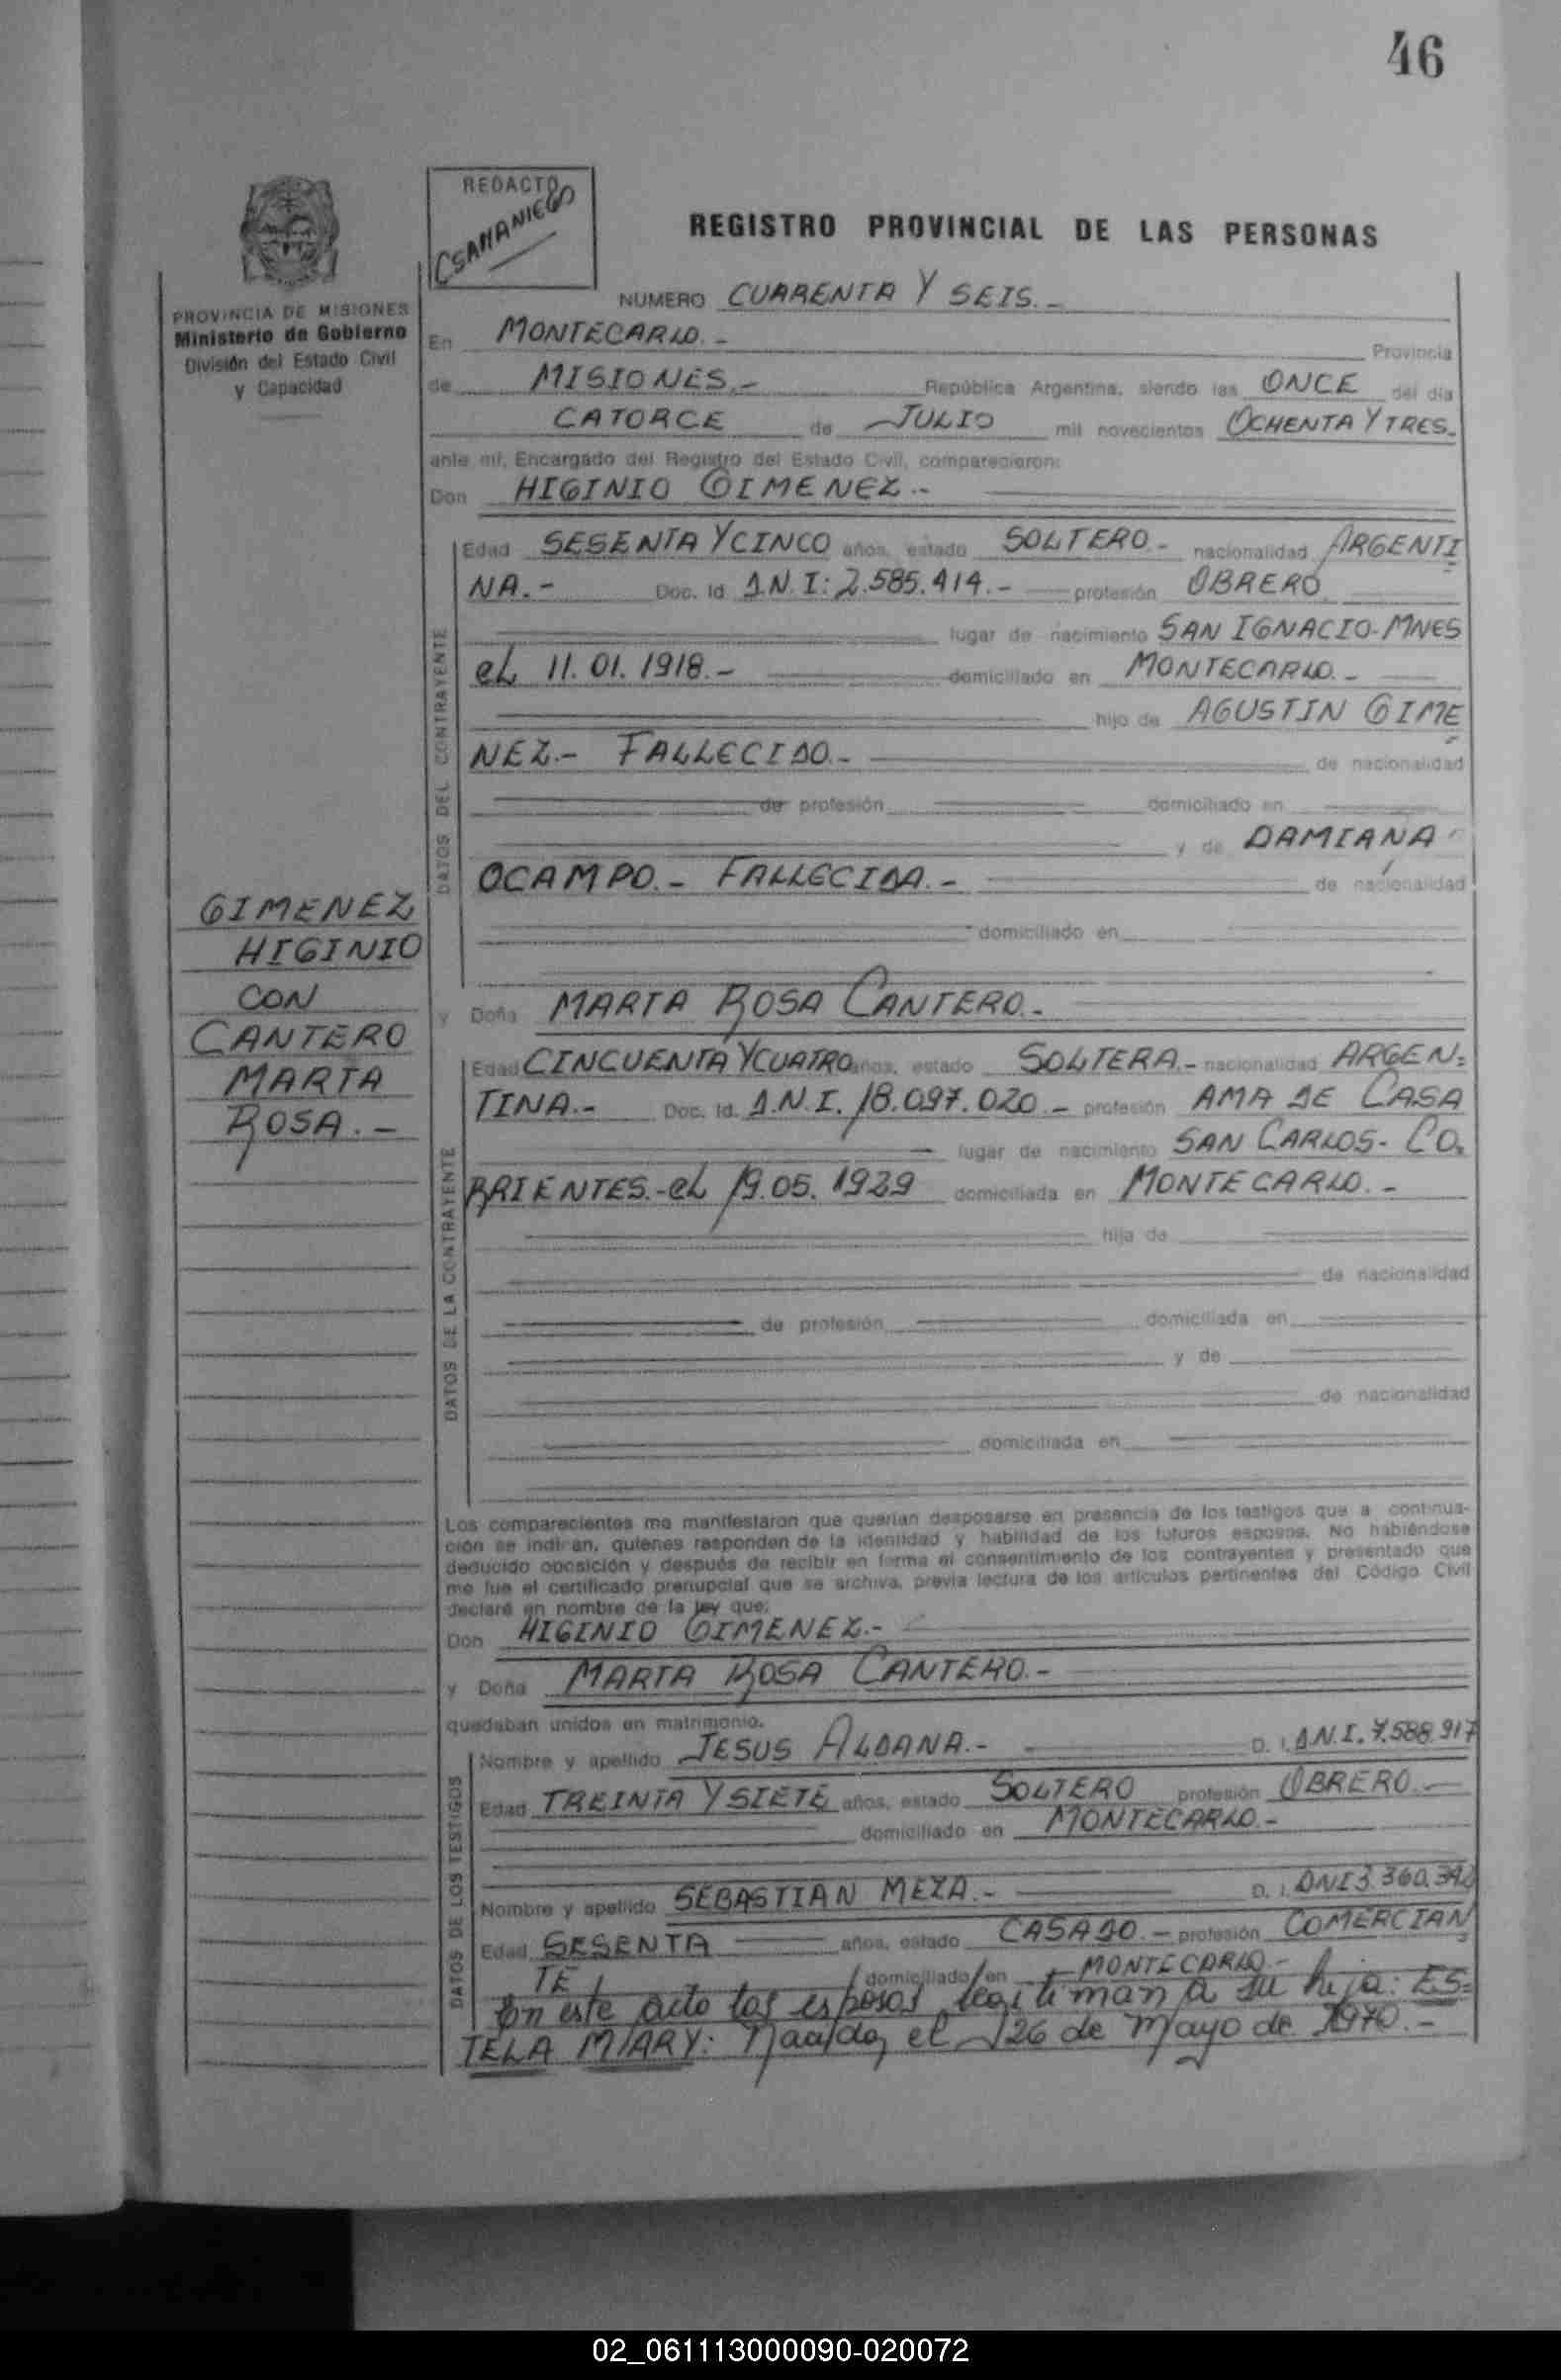 46
REDACTO
CSAMANIEGO
REGISTRO PROVINCIAL DE LAS PERSONAS
PROVINCIA DE MISIONES
Ministerio de Gobierno
División del Estado Civil
y Capacidad
NUMERO CUARENTA Y SEIS.-
En MONTECARLO.- Provincia
de MISIONES.- República Argentina, siendo las ONCE del día
CATORCE de JULIO mil novecientos OCHENTA Y TRES.
ante mi, Encargado del Registro del Estado Civil, comparecieron:
Don HIGINIO GIMENEZ.-
DATOS DEL CONTRAYENTE
Edad SESENTA Y CINCO años, estado SOLTERO.- nacionalidad ARGENTI
NA.- Doc. Id. D.N.I: 2.585.414.- profesión OBRERO
lugar de nacimiento SAN IGNACIO-MNES
el 11.01.1918.- domiciliado en MONTECARLO.-
hijo de AGUSTIN GIME
NEZ.- FALLECIDO.- de nacionalidad
de profesión domiciliado en
y de DAMIANA
OCAMPO.- FALLECIDA.- de nacionalidad
domiciliado en
GIMENEZ
HIGINIO
CON
CANTERO
MARTA
ROSA.-
y Doña MARTA ROSA CANTERO.-
DATOS DE LA CONTRAYENTE
Edad CINCUENTA Y CUATRO años, estado SOLTERA.- nacionalidad ARGEN=
TINA.- Doc. Id. D.N.I. 18.097.020.- profesión AMA DE CASA
lugar de nacimiento SAN CARLOS- CO=
RRIENTES.-el 19.05.1929 domiciliada en MONTECARLO.-
hija de
de nacionalidad
de profesión domiciliada en
y de
de nacionalidad
domiciliada en
Los comparecientes me manifestaron que querían desposarse en presencia de los testigos que a continua-
ción se indican, quienes responden de la identidad y habilidad de los futuros esposos. No habiéndose
deducido oposición y después de recibir en forma el consentimiento de los contrayentes y presentado que
me fue el certificado prenupcial que se archiva, previa lectura de los artículos pertinentes del Código Civil
declaré en nombre de la ley que:
Don HIGINIO GIMENEZ.-
y Doña MARTA ROSA CANTERO.-
quedaban unidos en matrimonio.
DATOS DE LOS TESTIGOS
Nombre y apellido JESUS ALDANA.- D. I. D.N.I. 7.588.917
Edad TREINTA Y SIETE años, estado SOLTERO profesión OBRERO.-
domiciliado en MONTECARLO.-
Nombre y apellido SEBASTIAN MEZA.- D. I. DNI 3.360.342
Edad SESENTA años, estado CASADO.- profesión COMERCIAN
TE domiciliado en MONTECARLO.-
En este acto los esposos legitiman a su hija: ES=
TELA MARY: Nacida, el 26 de Mayo de 1970.-
02_061113000090-020072